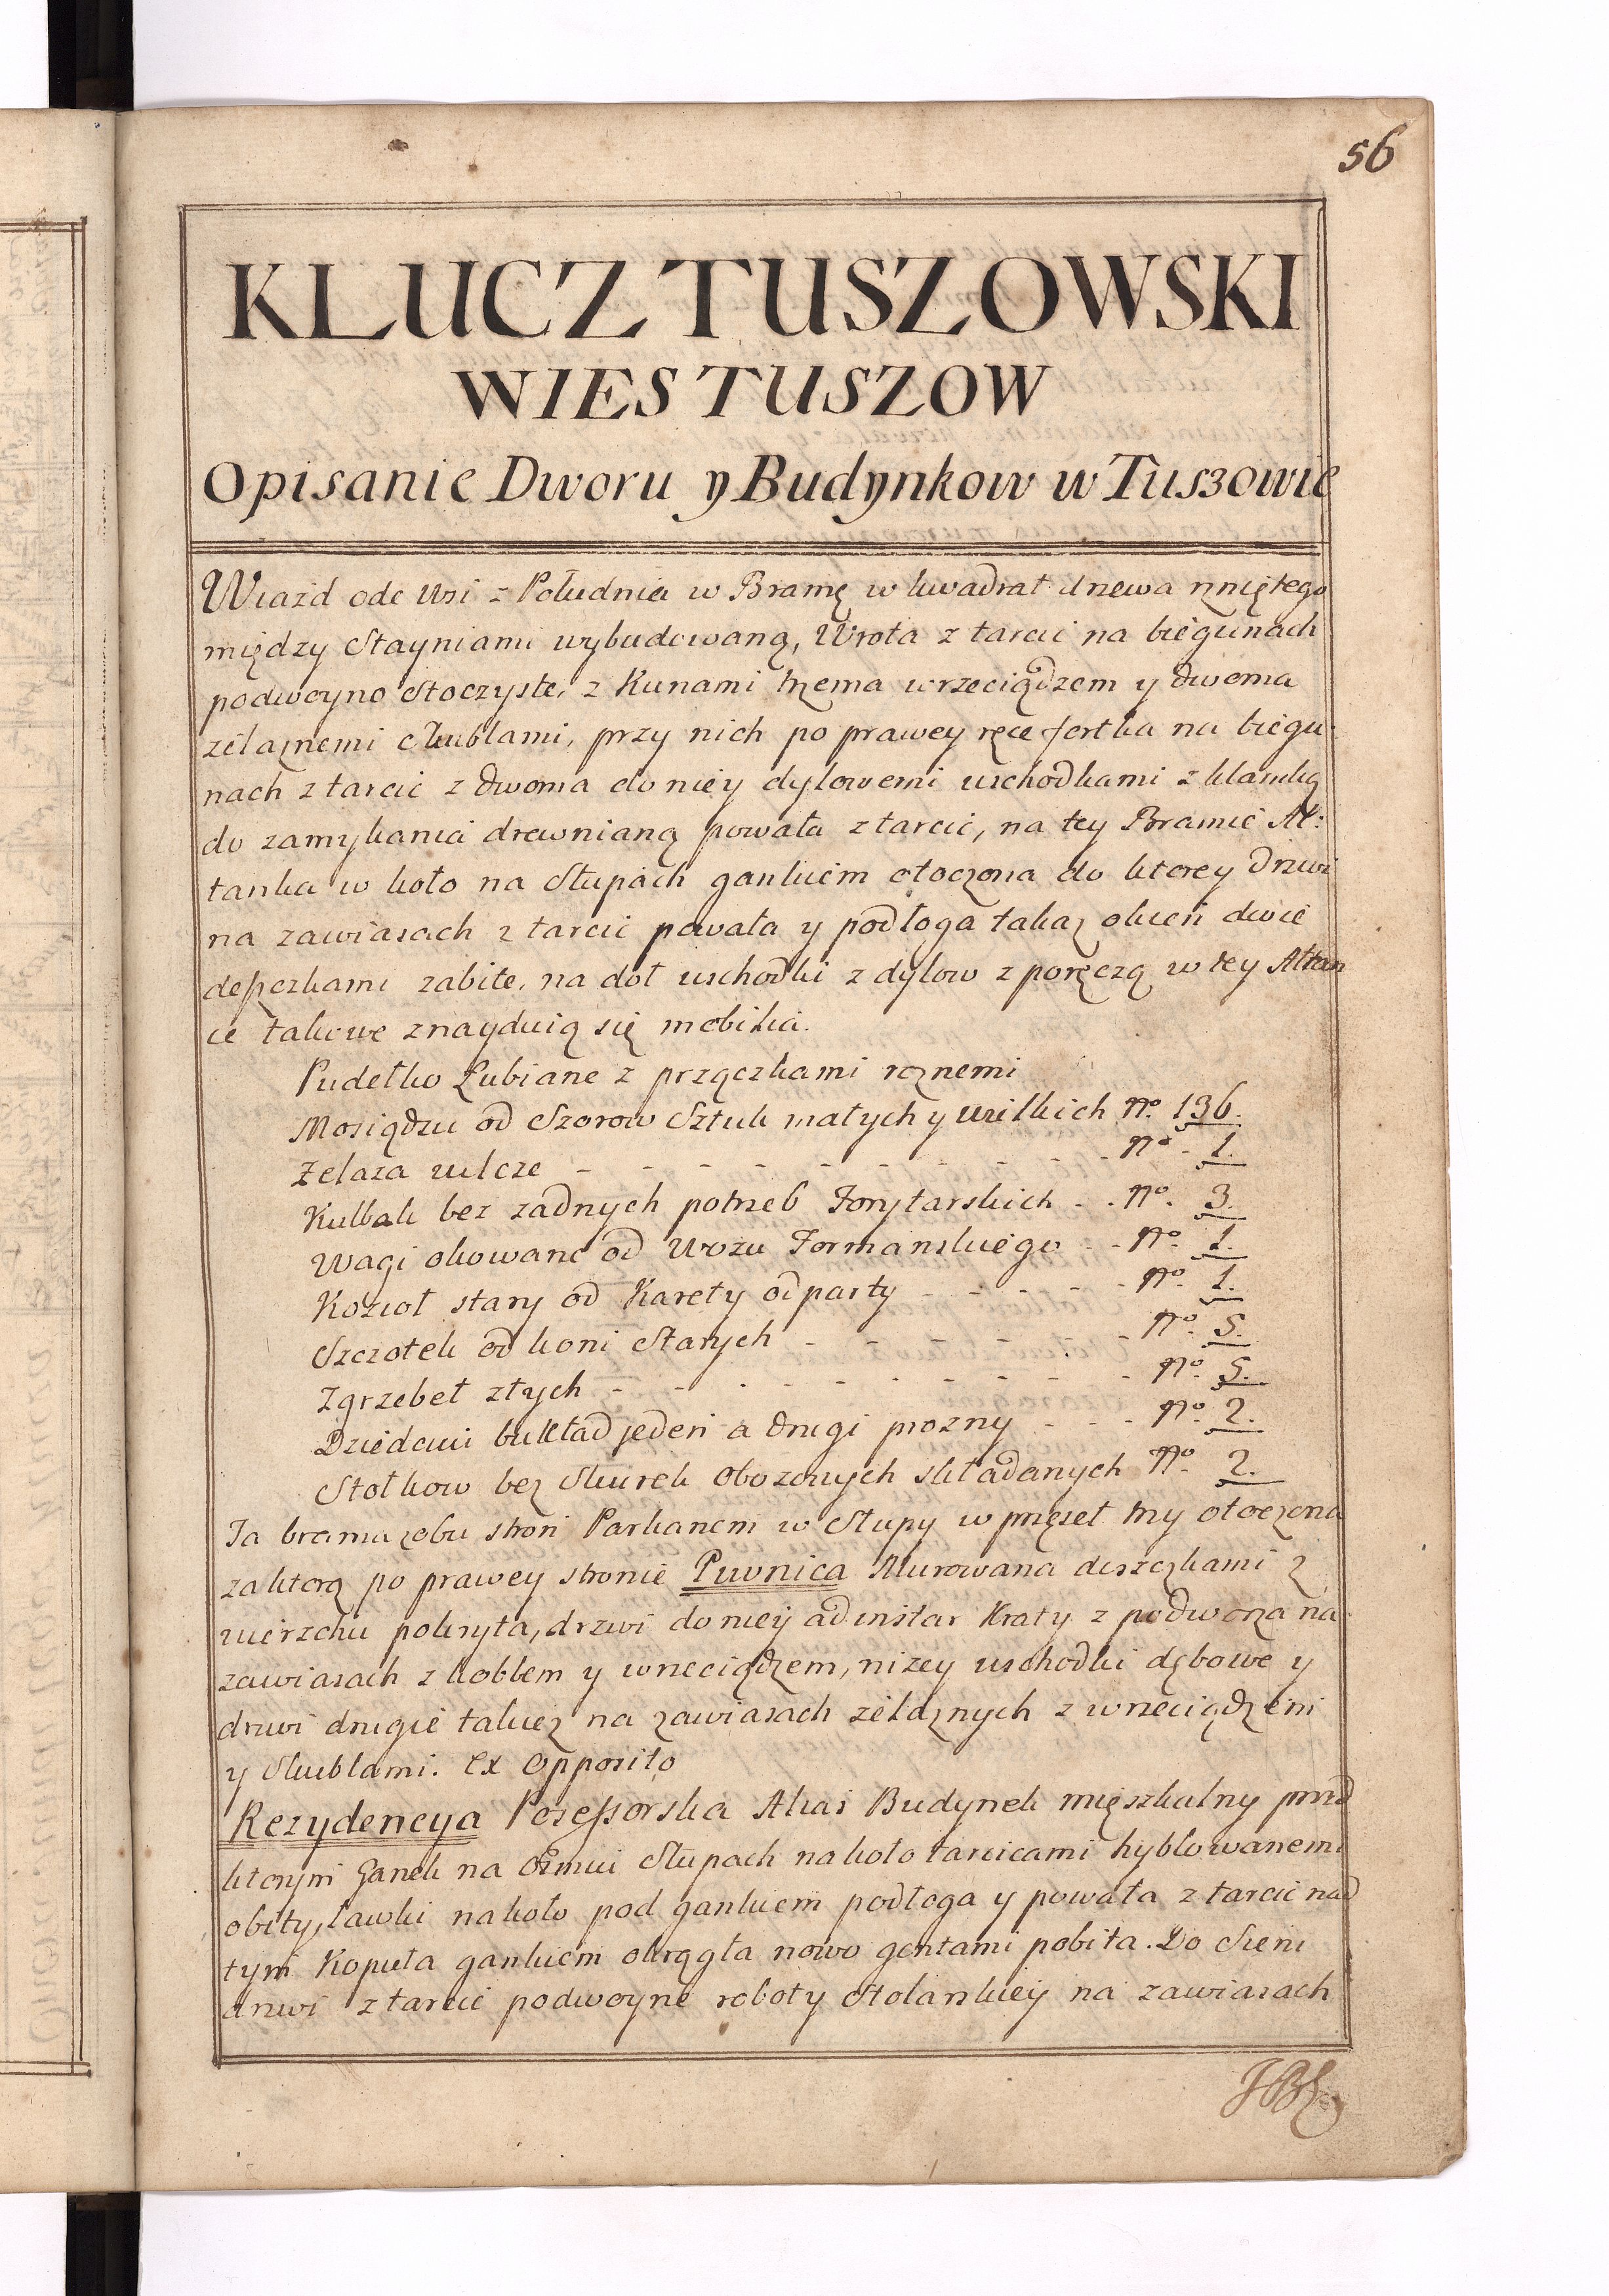 56
KLUCZ TUSZOWSKI
WIES TUSZOW
Opisanie Dworu y Budynkow w Tuszowie
Wiazd ode Wsi z Południa w Bramę w kwadrat drzewa rzniętego
między Stayniami wybudowaną, Wrota z tarcic na biegunach
podwoyno Stoczyste, z Kunami trzema wrzeciądzem y dwoma
żelaznemi skublami, przy nich po prawey ręce fortka na biegu-
nach z tarcic z dwoma do niey dylowemi wschodkami z klamką
do zamykania drewnianą powała z tarcic, na tey Bramie Al:
tanka w koło na Słupach gankiem otoczona do ktorey drzwi
na zawiasach z tarcic powała y podłoga takaz okien dwie
deszczkami zabite, na doł wschodki z dylow z poręczą w tey Altan
ce takowe znayduią się mobilia.
Pudełko Łubiane z przączkami roznemi
Mosiądzu od Szorow Sztuk małych y wielkich No. 136.
Zelaza wilcze - - - - - - - - - No - 1.
Kulbak bez zadnych potrzeb Forytarskich - - No. 3.
Wagi okowane od Wozu Formanskiego - - No. 1.
Kozioł stary od Karety odparty - - - - No. 1.
Szczotek od koni Starych - - - - - - No. 5.
Zgrzebeł złych - - - - - - - - - No. 5.
Dziedowi bukład jeden a drugi prozny - - - No. 2.
Stołkow bez Skurek Obozowych składanych No. 2.
Ta brama zobu stron Parkanem w Słupy w przęseł trzy otoczona
za ktorą po prawey stronie Piwnica Murowana deszczkami z
wierzchu pokryta, drzwi do niey ad instar Kraty z podwoyza na
zawiasach z koblem y wrzeciądzem, nizey wschodki dębowe y
drzwi drugie takiez na zawiasach zelaznych z wrzeciądzem
y Skublami. Ex Opposito
Rezydencya Possessorska Alias Budynek mięszkalny przed
ktorym Ganek na Osmui Słupach na koło tarcicami hyblowanemi
obity, ławki na koło pod gankiem podłoga y powała z tarcic nad
tym Kopuła gankiem okrągła nowo gontami pobita. Do Sieni
drzwi z tarcic podwoyne roboty Stolarskiey na zawiasach